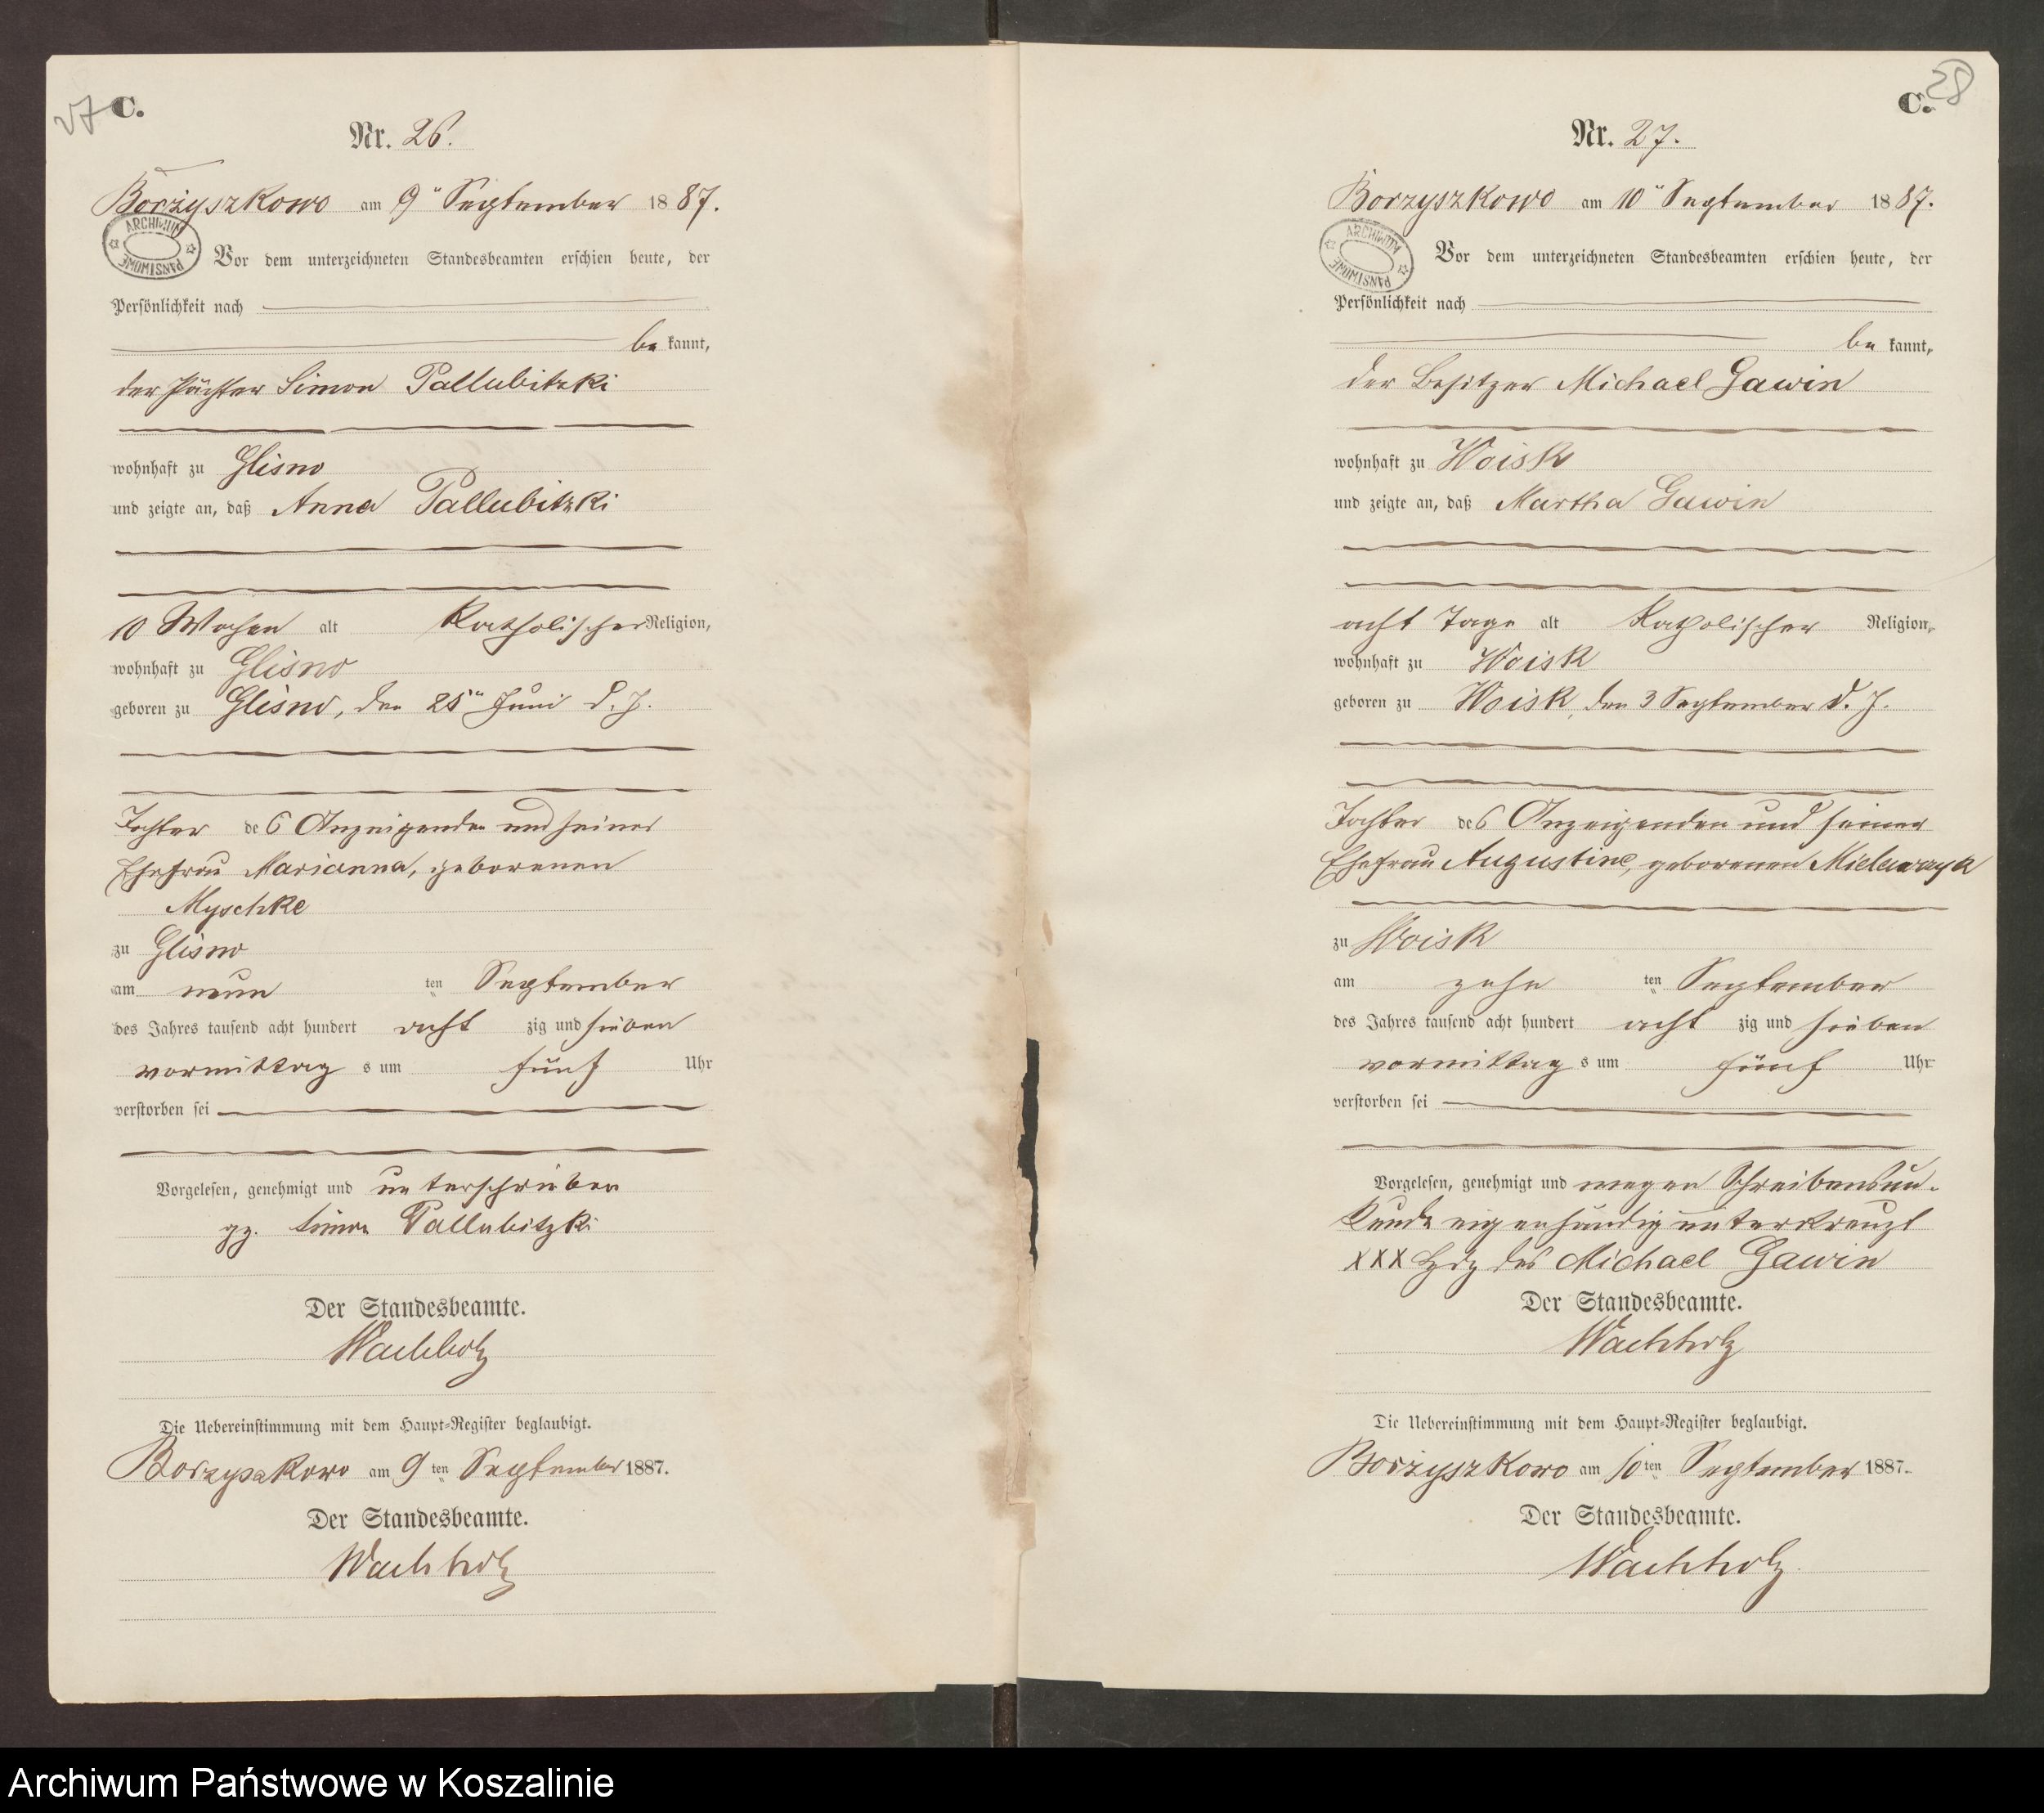 27
C.
Nr. 26.
Borzyszkowo am 9" September 1887.
ARCHIWUM PAŃSTWOWE
Vor dem unterzeichneten Standesbeamten erschien heute, der
Persönlichkeit nach
be kannt,
der Pächter Simon Pallubitzki
wohnhaft zu Glisno
und zeigte an, daß Anna Pallubitzki
10 Wochen alt Katholischer Religion,
wohnhaft zu Glisno
geboren zu Glisno, den 25" Juni d. J.
Tochter des Anzeigenden und seiner
Ehefrau Marianna, geborenen
Myschke
zu Glisno
am neun ten September
des Jahres tausend acht hundert acht zig und sieben
vormittag s um fünf Uhr
verstorben sei
Vorgelesen, genehmigt und unterschrieben
gz. Simon Pallubitzki
Der Standesbeamte.
Wachholz
Die Uebereinstimmung mit dem Haupt-Register beglaubigt.
Borzyszkowo am 9 ten September 1887.
Der Standesbeamte.
Wachholz
28
C.
Nr. 27.
Borzyszkowo am 10" September 1887.
ARCHIWUM PAŃSTWOWE
Vor dem unterzeichneten Standesbeamten erschien heute, der
Persönlichkeit nach
be kannt,
der Besitzer Michael Gawin
wohnhaft zu Woisk
und zeigte an, daß Martha Gawin
acht Tage alt Katholischer Religion,
wohnhaft zu Woisk
geboren zu Woisk, den 3 September d. J.
Tochter des Anzeigenden und seiner
Ehefrau Augustine, geborenen
zu Woisk
am zehn ten September
des Jahres tausend acht hundert acht zig und sieben
vormittag s um fünf Uhr
verstorben sei
Vorgelesen, genehmigt und wegen Schreibensun-
kunde eigenhändig unterkreuzt
XXX Hdz des Michael Gawin
Der Standesbeamte.
Wachholz
Die Uebereinstimmung mit dem Haupt-Register beglaubigt.
Borzyszkowo am 10 ten September 1887.
Der Standesbeamte.
Wachholz.
Archiwum Państwowe w Koszalinie